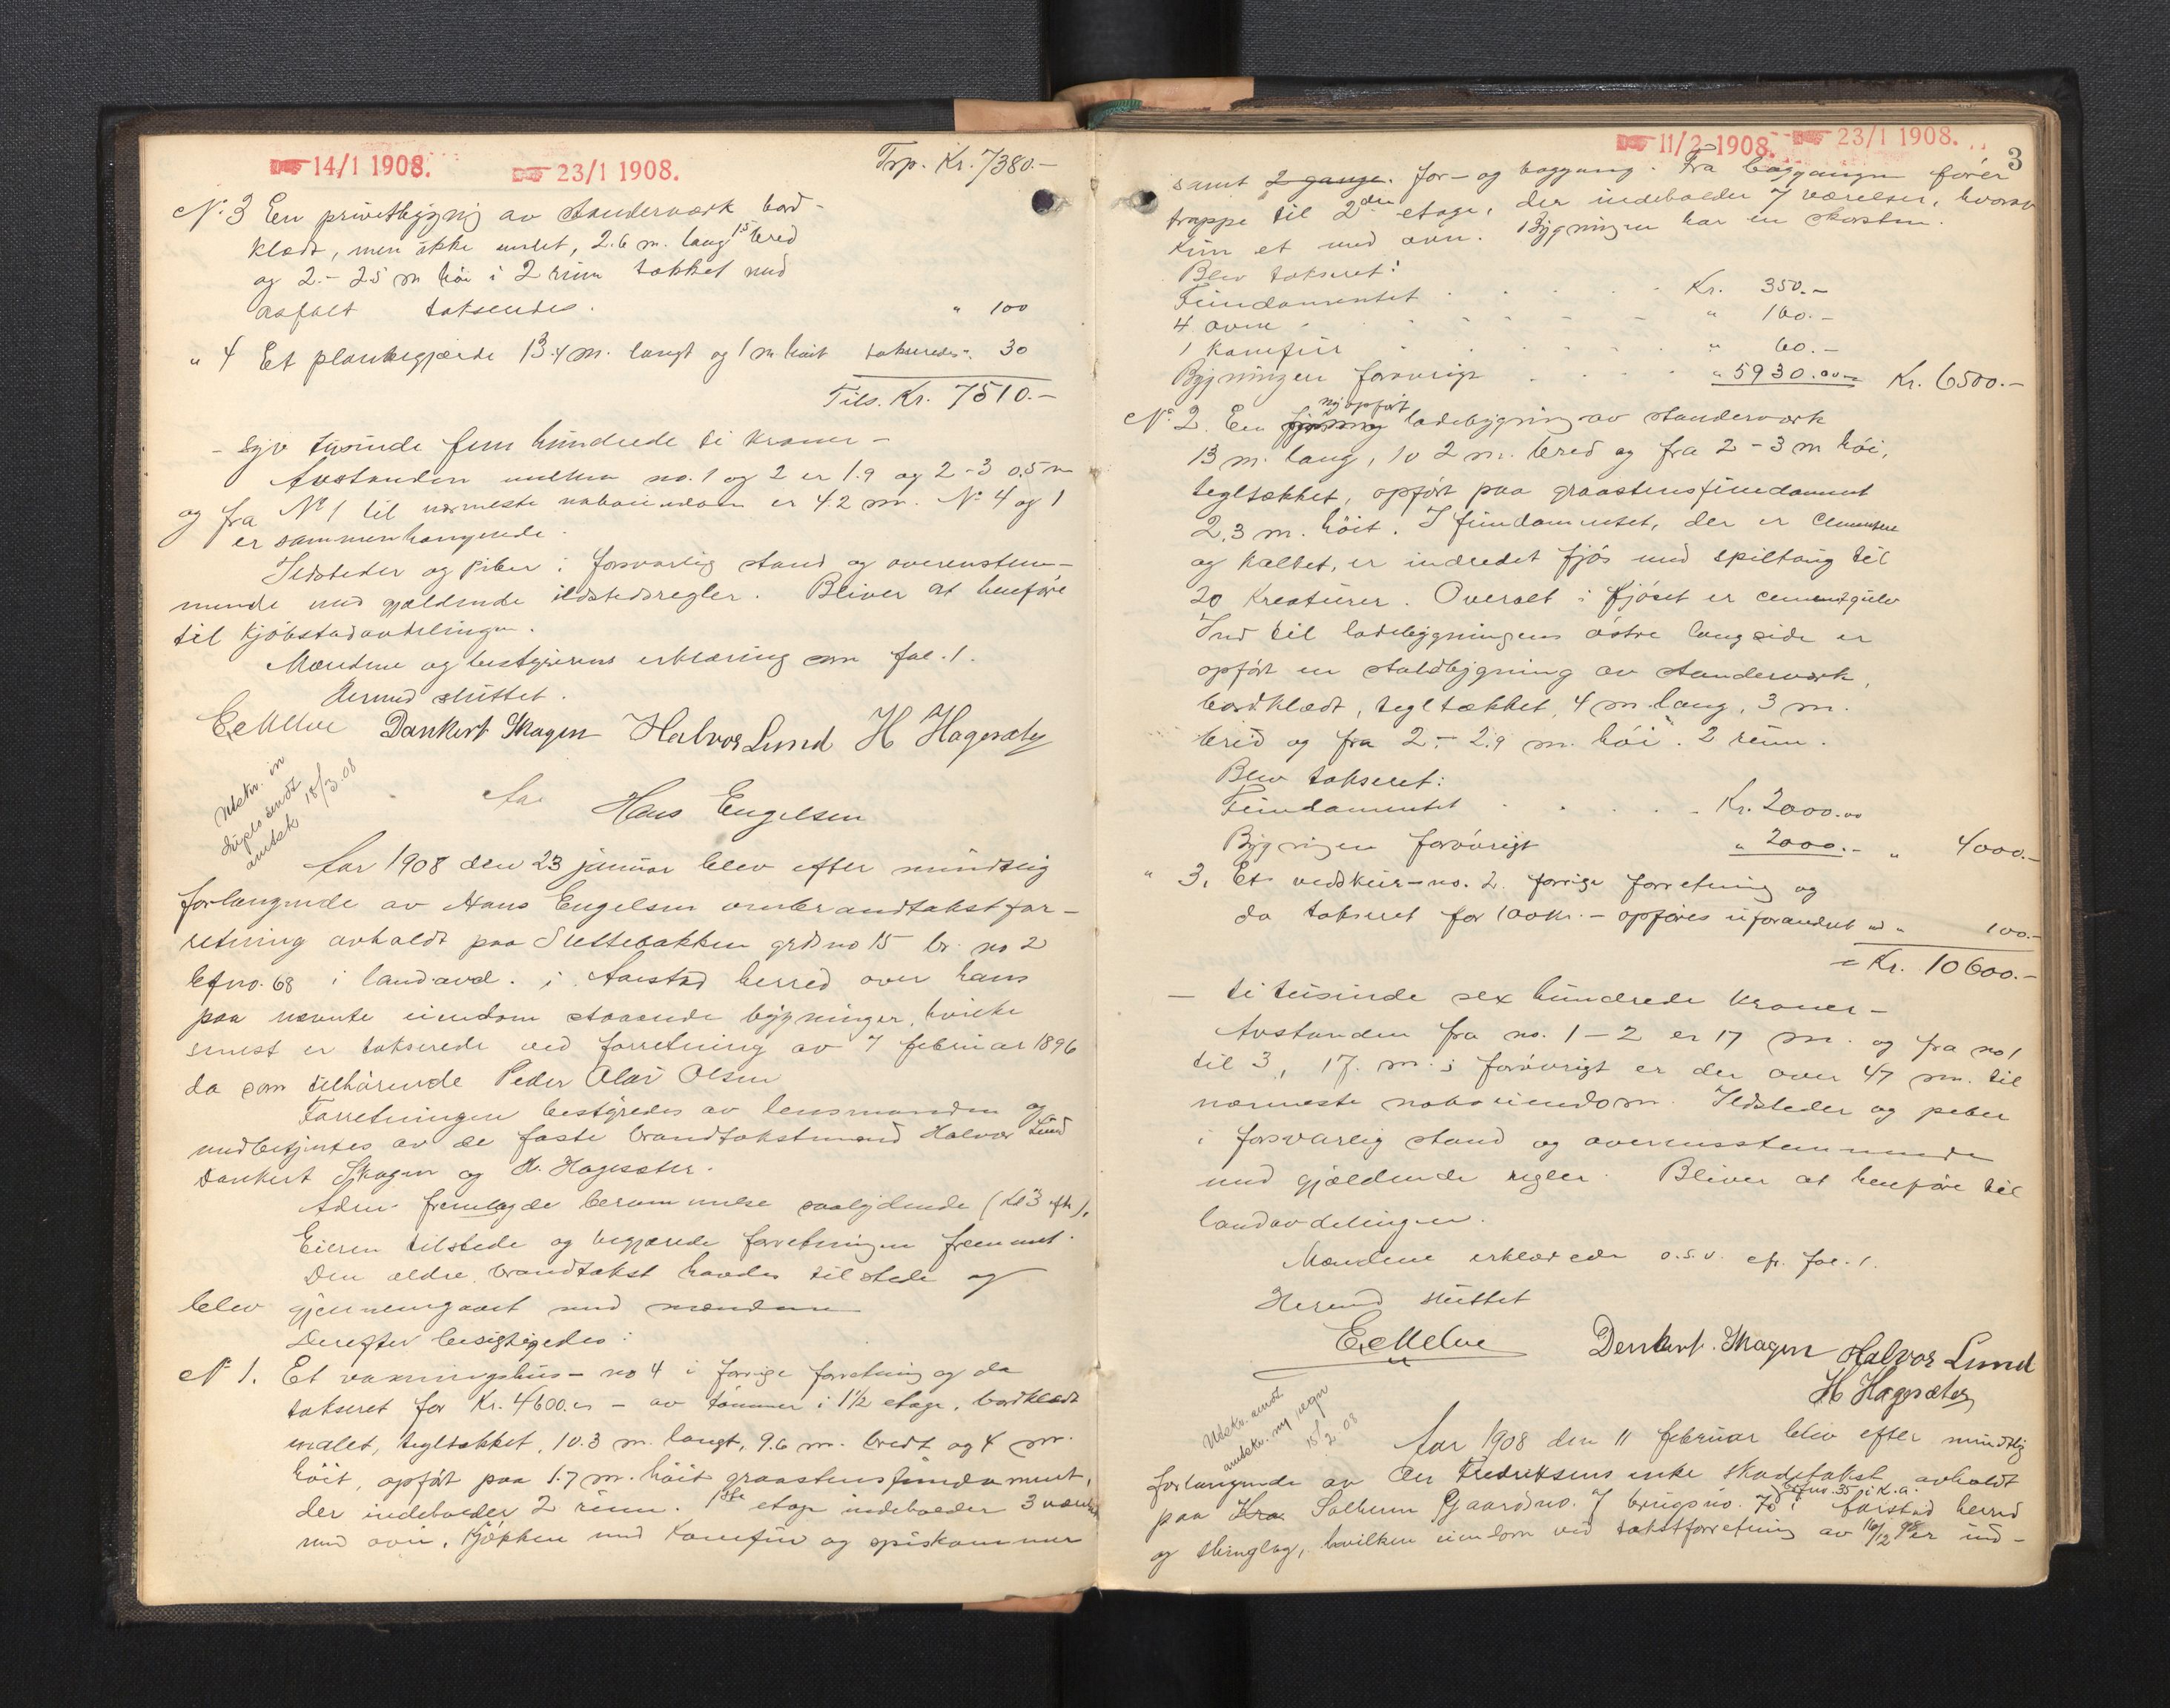 14/1 1908. 23/1 1908. Trp. Kr. 7380.-
No 3 En privetbygnig av standerværk bord-
klædt, men ikke malet, 2.6 m. lang 1.5 bred
og 2.- 2.5 m høi i 2 rum tækket med
asfalt takseredes. " 100
" 4 Et plankegjærde 13.4 m. langt og 1 m. høit takseredes ". 30
Tils. Kr. 7510.-
- Syv tusinde fem hundrede ti kroner -
Avstanden mellem no. 1 og 2 er 1.9 og 2-3 0.5 m
og fra No 1 til nærmeste naboeiendom er 4.2 m. No 4 og 1
er sammenhængende.
Ildsteder og piber i forsvarlig stand og overenstem-
mende med gjældende ildstedsregler. Bliver at henføre
til kjøbstadavdelingen.
Mændene og bestyrerens erklæring som fol. 1.
Hermed sluttet.
Dankert Skagen Halvor Lund H Hagesæter
Utskr. in
duplo sendt
amtsk 18/3.08
Hans Engelsen
Aar 1908 den 23 januar blev efter mundtlig
forlangende av Hans Engelsen ombrandtakstfor-
retning avholdt paa Slettebakken grdsno 15 br. no 2
lfno. 68 i landavd. i Aarstad herred over hans
paa nævnte eiendom staaende bygninger, hvilke
senest er takserede ved forretning av 7 februar 1896
da som tilhørende Peder Olai Olsen
Forretningen bestyredes av lensmanden og
medbetjentes av de faste brandtakstmænd Halvor Lund
Dankert Skagen og H. Hagesæter.
Adm. fremlagde berammelse saalydende
Eieren tilstede og begjærede forretningen fremmet.
Den ældre brandtakst havdes tilstede og
blev gjennemgaaet med mændene
Derefter besigtigedes:
No 1. Et vaaningshus - no 4 i forrige forretning og da
takseret for Kr. 4600.00 - av tømmer i 1½ etage, bordklædt
malet, tegltækket, 10.3 m. langt, 9.6 m. bredt og 4 m.
høit, opført paa 1.7 m. høit graastensfundament,
der indeholder 2 rum. 1ste etage indeholder 3 værelser
med ovn, kjøkken med komfur og spiskammer
11/2 1908. 23/1 1908. 3
samt 2 gange. for- og baggang. Fra baggangen fører
trappe til 2den etage, der indeholder 7 værelser, hvorav
kun et med ovn. Bygningen har en skorsten.
Blev takseret:
Fundamentet Kr. 350.-
4 ovne " 160.-
1 Komfur " 60.-
Bygningen forøvrigt " 5930.00 Kr. 6500.-
No 2. En nyopført ladebygning av standerværk
13 m. lang, 10 2 m. bred og fra 2 - 3 m høi,
tegltækket, opført paa graastensfundament
2,3 m. høit. I fundamentet, der er cementeret
og kalket, er indredet fjøs med spiltaug til
20 kreaturer. Overalt i fjøset er cementgulv
Ind til ladebygningens østre langside er
opført en staldbygning av standerværk,
bordklædt, tegltækket, 4 m lang, 3 m.
bred og fra 2.- 2.9 m. høi. 2 rum.
Blev takseret:
Fundamentet Kr. 2000.00
Bygningen forøvrigt " 2000.- " 4000.-
" 3. Et vedskur - no. 2. forrige forretning og
da takseret for 100 kr. - opføres uforandret " 100.-
= Kr. 10600.-
- ti tusinde sex hundrede kroner -
Avstanden fra no. 1-2 er 17 m. og fra no 1
til 3, 17. m.; forøvrigt er der over 47 m. til
nærmeste naboeiendom. Ildsteder og piber
i forsvarlig stand og overensstemmende
med gjældende regler. Bliver at henføre til
landavdelingen.
Mændene erklærede o.s.v. cfr. fol. 1.
Hermed sluttet
Dankert. Skagen Halvor Lund
H Hagesæter
Utskr. sendt
amtskr. 15/2 08
Aar 1908 den 11 februar blev efter mundtlig
forlangende av Fredriksens enke skadetakst avholdt
paa Kra Solheim Gaardsno. 7 brugsno. 70 lfno. 35 i K.a. i Aarstad herred
og thinglag, hvilken eiendom ved takstforretning av 16/12 98 er ind-